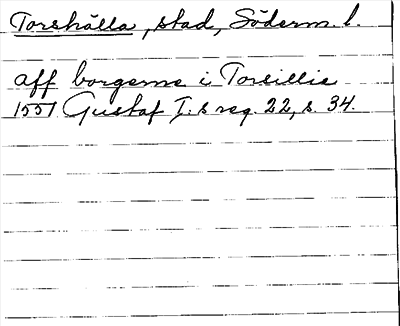 Torshälla, stad, Söderm. l.
aff borgerne i Torsillie
1551 Gustaf I:s reg. 22, s. 34.